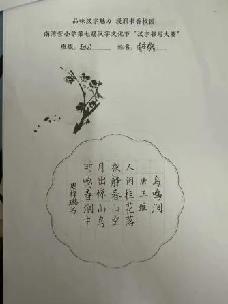 品味汉字魅力 浸润书香校园
小学第七届汉字文化节“汉字书写大赛”
班级： 姓名：
鸟鸣涧
唐王维
人闲桂花落
夜静春山空
月出惊山鸟
时鸣春涧中